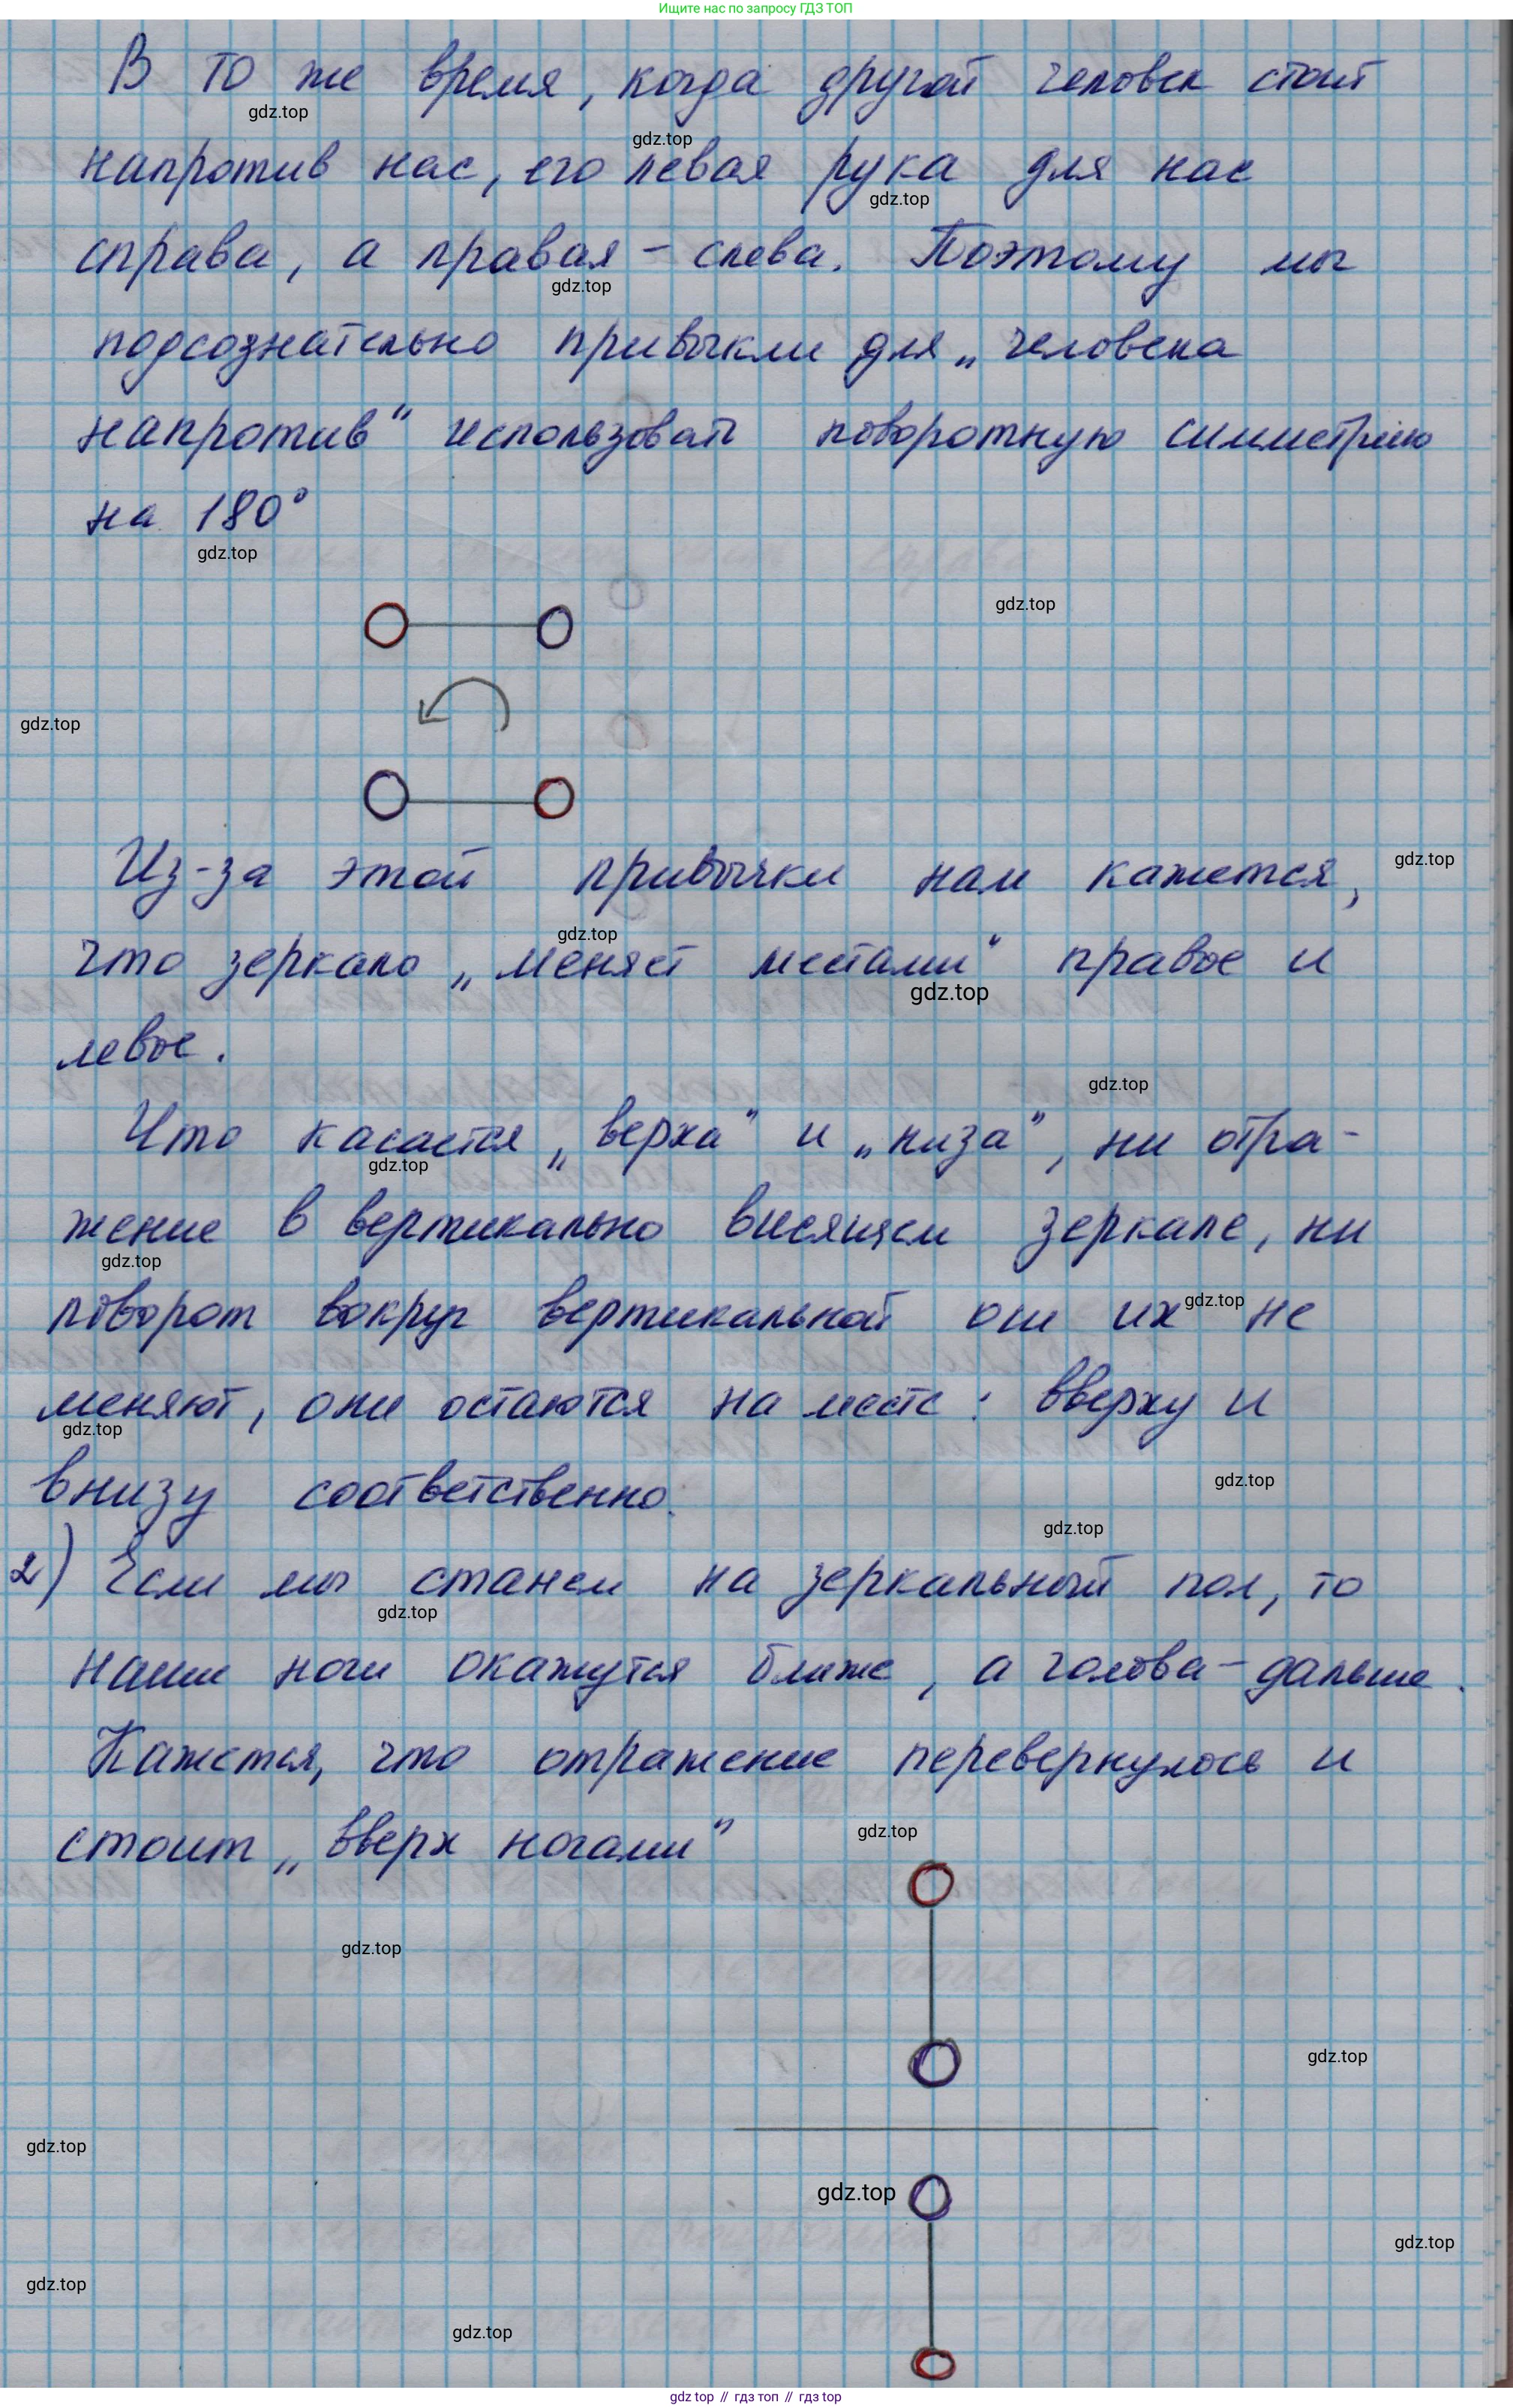 Ищите нас по запросу ГДЗ ТОП
В то же время, когда другой человек стоит
gdz.top
gdz.top
напротив нас, его левая рука для нас
gdz.top
справа, а правая - слева. Поэтому мы
gdz.top
подсознательно привыкли для „человека
напротив“ использовать поворотную симметрию
на 180°
gdz.top
gdz.top
gdz.top
Из-за этой привычки нам кажется,
gdz.top
gdz.top
что зеркало „меняет местами“ правое и
gdz.top
левое.
gdz.top
Что касается „верха“ и „низа“, ни отра-
gdz.top
жение в вертикально висящем зеркале, ни
gdz.top
gdz.top
поворот вокруг вертикальной оси их не
меняют, они остаются на месте: вверху и
gdz.top
gdz.top
внизу соответственно.
gdz.top
2) Если мы станем на зеркальный пол, то
gdz.top
наши ноги окажутся ближе, а голова - дальше.
Кажется, что отражение перевернулось и
стоит „вверх ногами“
gdz.top
gdz.top
gdz.top
gdz.top
gdz.top
gdz.top
gdz.top
gdz.top
gdz top // гдз топ // gdz top